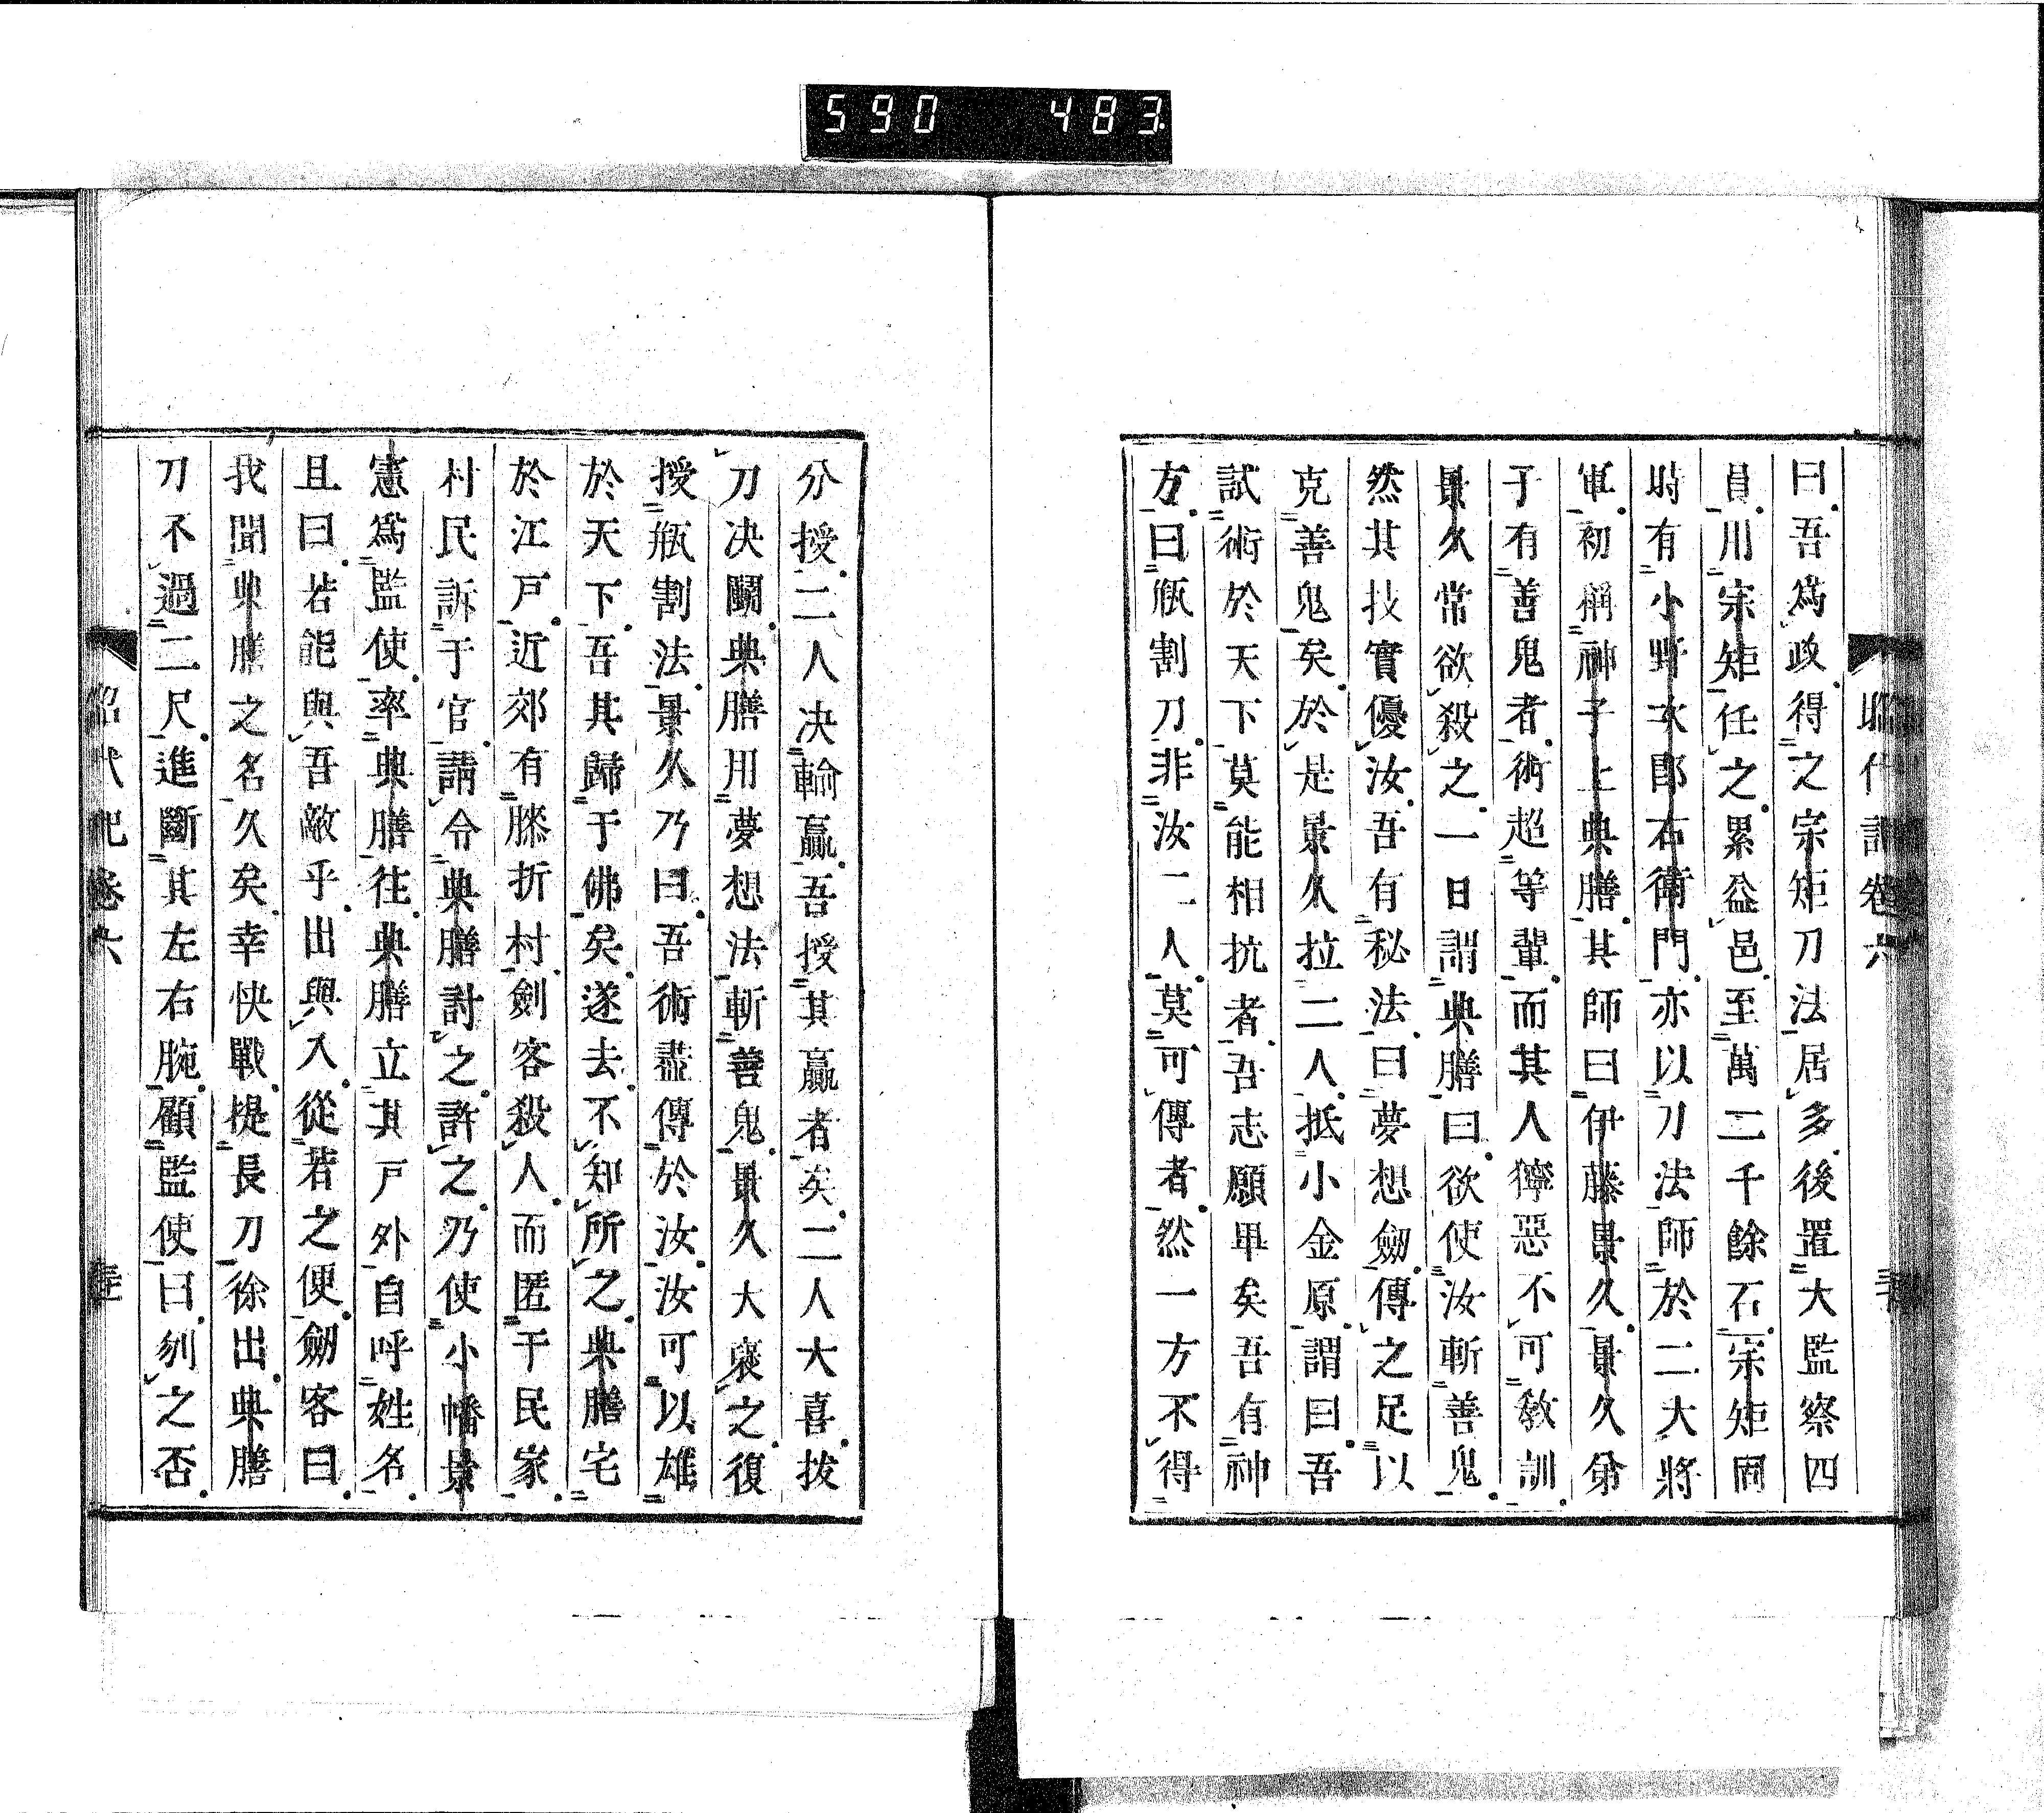 590 483
曰吾爲政得之宗矩刀法居多後置大監察四
員用宗矩任之累益邑至萬二千餘石宗矩同
時有小野次郎右衛門亦以刀法師於二大將
軍初稱神子上典膳其師曰伊藤景久景久弟
子有善鬼者術超等輩而其人獰惡不可敎訓
景久常欲殺之一日謂典膳曰欲使汝斬善鬼
然其技實優汝吾有秘法曰夢想劒傳之足以
克善鬼矣於是景久拉二人抵小金原謂曰吾
試術於天下莫能相抗者吾志願畢矣吾有神
方曰瓶割刀非汝二人莫可傳者然一方不得
分授二人决輸贏吾授其贏者矣二人大喜拔
刀决鬭典膳用夢想法斬善鬼景久大襃之復
授瓶割法景久乃曰吾術盡傳於汝汝可以雄
於天下吾其歸于佛矣遂去不知所之典膳宅
於江戸近郊有膝折村劍客殺人而匿于民家
村民訴于官請令典膳討之許之乃使小幡景
憲爲監使率典膳往典膳立其戸外自呼姓名
且曰若能與吾敵乎出與入從若之便劒客曰
我聞典膳之名久矣幸快戰提長刀徐出典膳
刀不過二尺進斷其左右腕顧監使曰刎之否
昭代記卷六